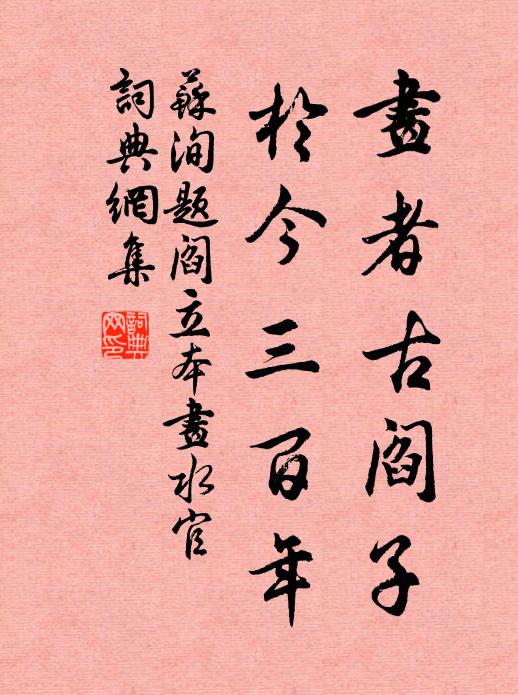 畫者古閻子
於今三百年
蘇洵題閻立本畫水官
詞典網集
詞典網印